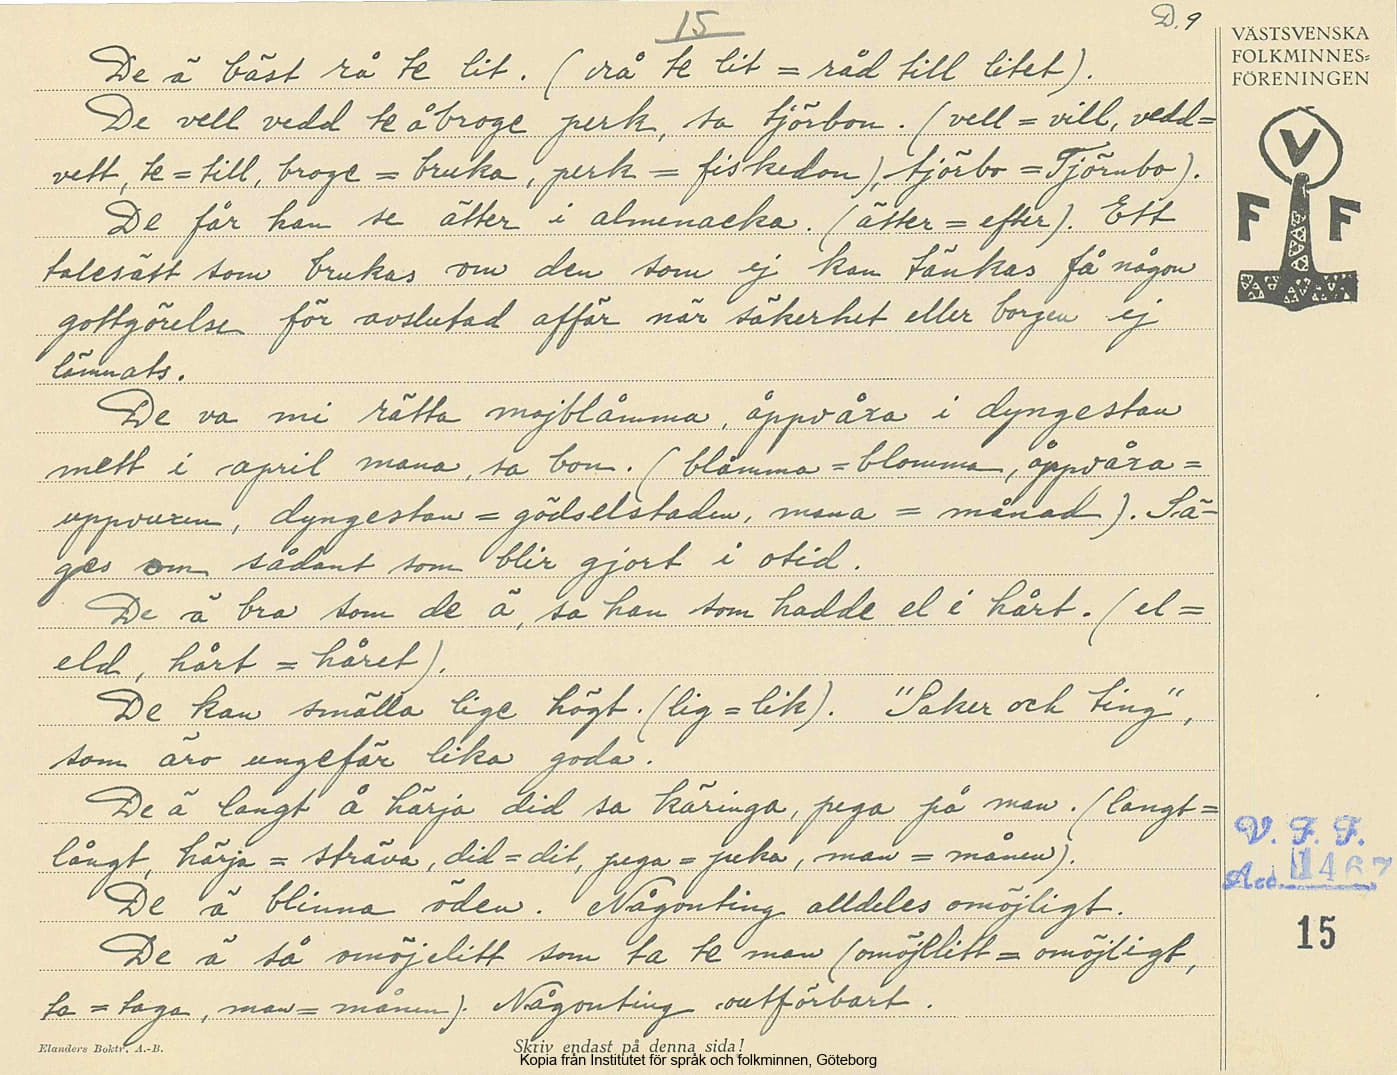 15
D. 9
VÄSTSVENSKA
FOLKMINNES-
FÖRENINGEN
V
F F
De ä bäst rå te lit. (rå te lit = råd till litet).
De vell vedd te åbroge perk, sa tjörbon. (vell = vill, vedd=
vett, te = till, broge = bruka, perk = fiskedon), tjörbo = Tjörnbo).
De får han se ätter i almenacka. (ätter = efter). Ett
talesätt som brukas om den som ej kan tänkas få någon
gottgörelse för avslutad affär när säkerhet eller borgen ej
lämnats.
De va mi rätta majblåmma, åppvåxa i dyngestan
mett i april mana, sa bon. (blåmma = blomma, åppvåxa =
uppvuxen, dyngestan = gödselstaden, mana = månad). Sä-
ges om sådant som blir gjort i otid.
De ä bra som de ä, sa han som hadde el i hårt. (el =
eld, hårt = håret).
De kan smälla lige högt. (lig = lik). "Saker och ting",
som äro ungefär lika goda.
De ä langt å härja did sa käringa, pega på man. (langt=
långt, härja = sträva, did = dit, pega = peka, man = månen).
De ä blinna öden. Någonting alldeles omöjligt.
De ä så omöjelitt som ta te man (omöjelitt = omöjligt,
ta = taga, man = månen). Någonting outförbart.
V. F. F.
Acc. 1467
15
Elanders Boktr. A.-B.
Skriv endast på denna sida!
Kopia från Institutet för språk och folkminnen, Göteborg